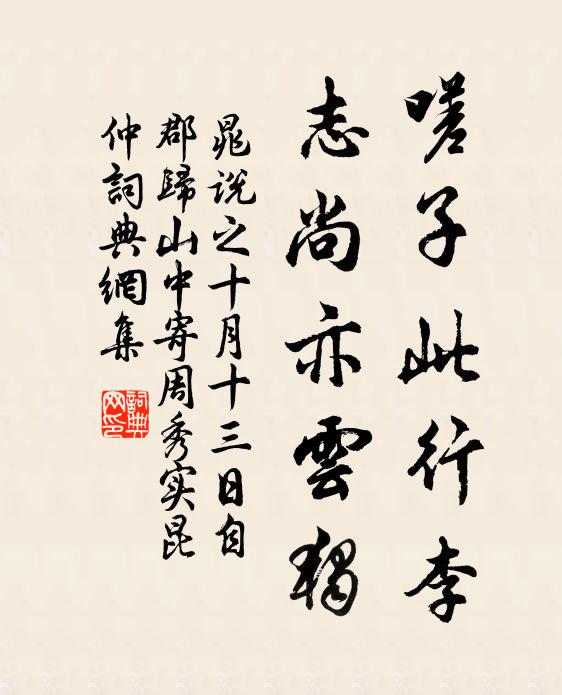 嗟子此行李
志尚亦雲獨
晁說之十月十三日自
郡歸山中寄周秀实昆
仲詞典網集
詞典
网印